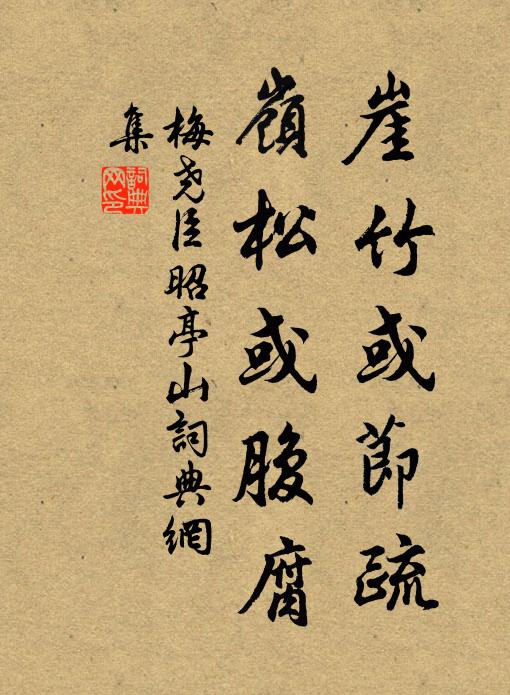 崖竹或節疏
嶺松或腹腐
梅堯臣昭亭山詞典網
集
詞典網印